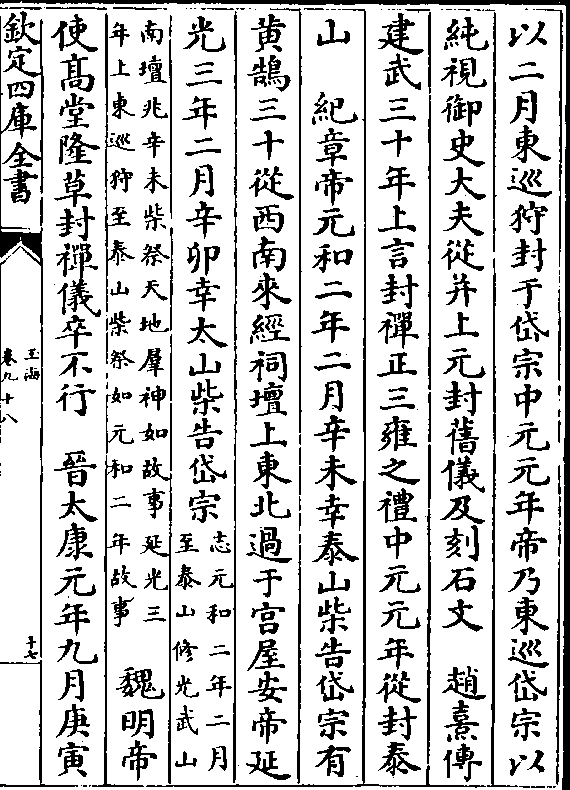 以二月東巡狩封于岱宗中元元年帝乃東巡岱宗以
純視御史大夫從并上元封舊儀及刻石文　趙熹傳
建武三十年上言封禪正三雍之禮中元元年從封泰
山　紀章帝元和二年二月辛未幸泰山柴告岱宗有
黄鵠三十從西南來經祠壇上東北過于宫屋安帝延
光三年二月辛卯幸太山柴告岱宗志元和二年二月
至泰山修光武山
南壇兆辛未柴祭天地羣神如故事延光三
年上東巡狩至泰山柴祭如元和二年故事　魏明帝
使髙堂隆草封禪儀卒不行　晉太康元年九月庚寅
欽定四庫全書
玉海
卷九十八
十七